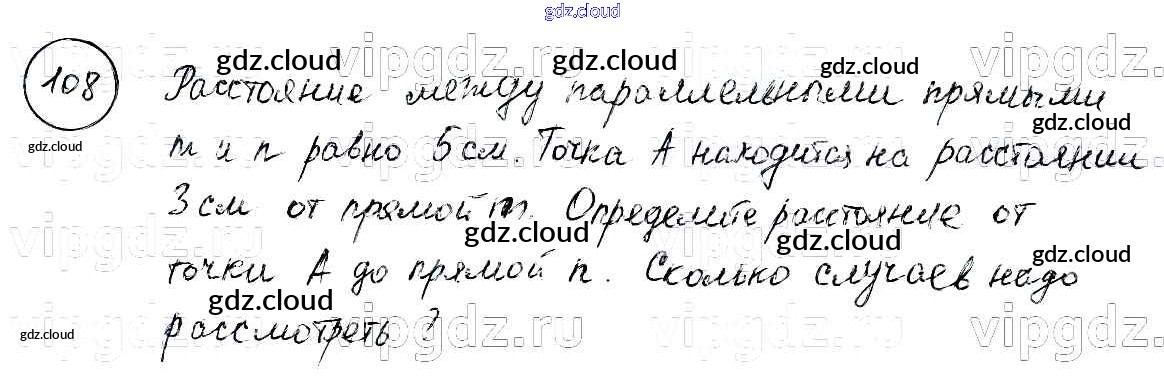 gdz.cloud
108
Расстояние между параллельными прямыми
m и n равно 5 см. Точка А находится на расстоянии
3 см от прямой m. Определите расстояние от
точки А до прямой n. Сколько случаев надо
рассмотреть?
gdz.cloud gdz.cloud gdz.cloud gdz.cloud
vipgdz.ru vipgdz.ru vipgdz.ru vipgdz.ru
gdz.cloud
gdz.cloud
vipgdz.ru vipgdz.ru vipgdz.ru vipgdz.ru
gdz.cloud gdz.cloud gdz.cloud
gdz.cloud
gdz.cloud
vipgdz.ru vipgdz.ru vipgdz.ru vipgdz.ru